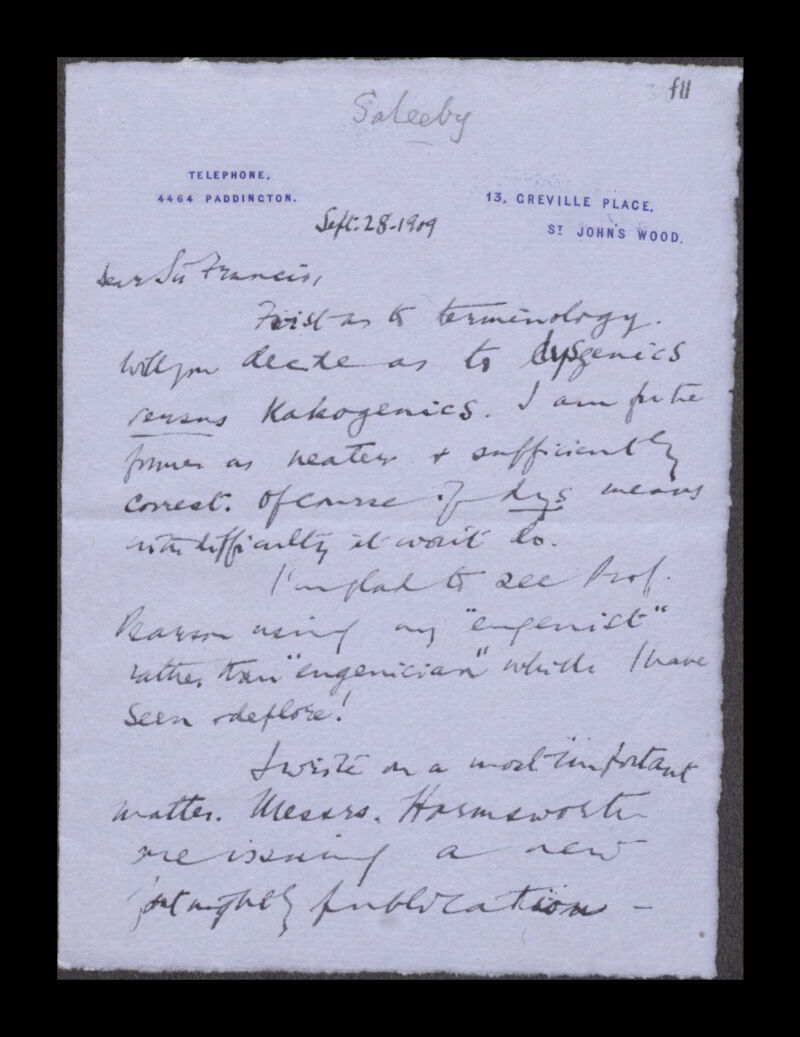 f11
Saleeby
TELEPHONE,
4464 PADDINGTON.
13, GREVILLE PLACE,
ST JOHN'S WOOD.
Sept. 28-1909
Dear Sir Francis,
First as to terminology.
Will you decide as to dysgenics
versus Kakogenics. I am for the
former as neater & sufficiently
correct. Of course if dys means
with difficulty it won't do.
I'm glad to see Prof.
Pearson using my "eugenist"
rather than "eugenician" which I have
seen & deplore!
I write on a most important
matter. Messrs. Harmsworth
are issuing a new
fortnightly publication -